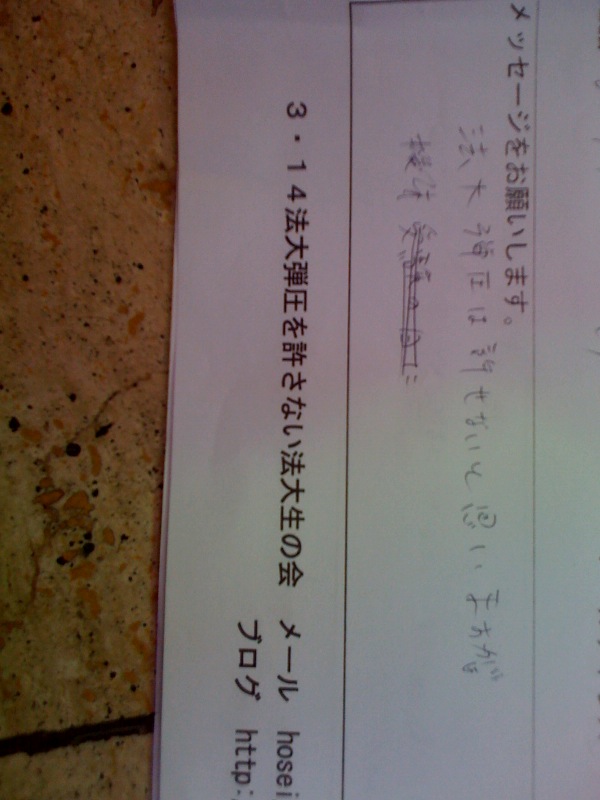 メッセージをお願いします。
法大弾圧は許せないと思いますが
３・１４法大弾圧を許さない法大生の会　メール　hosei
ブログ　http: